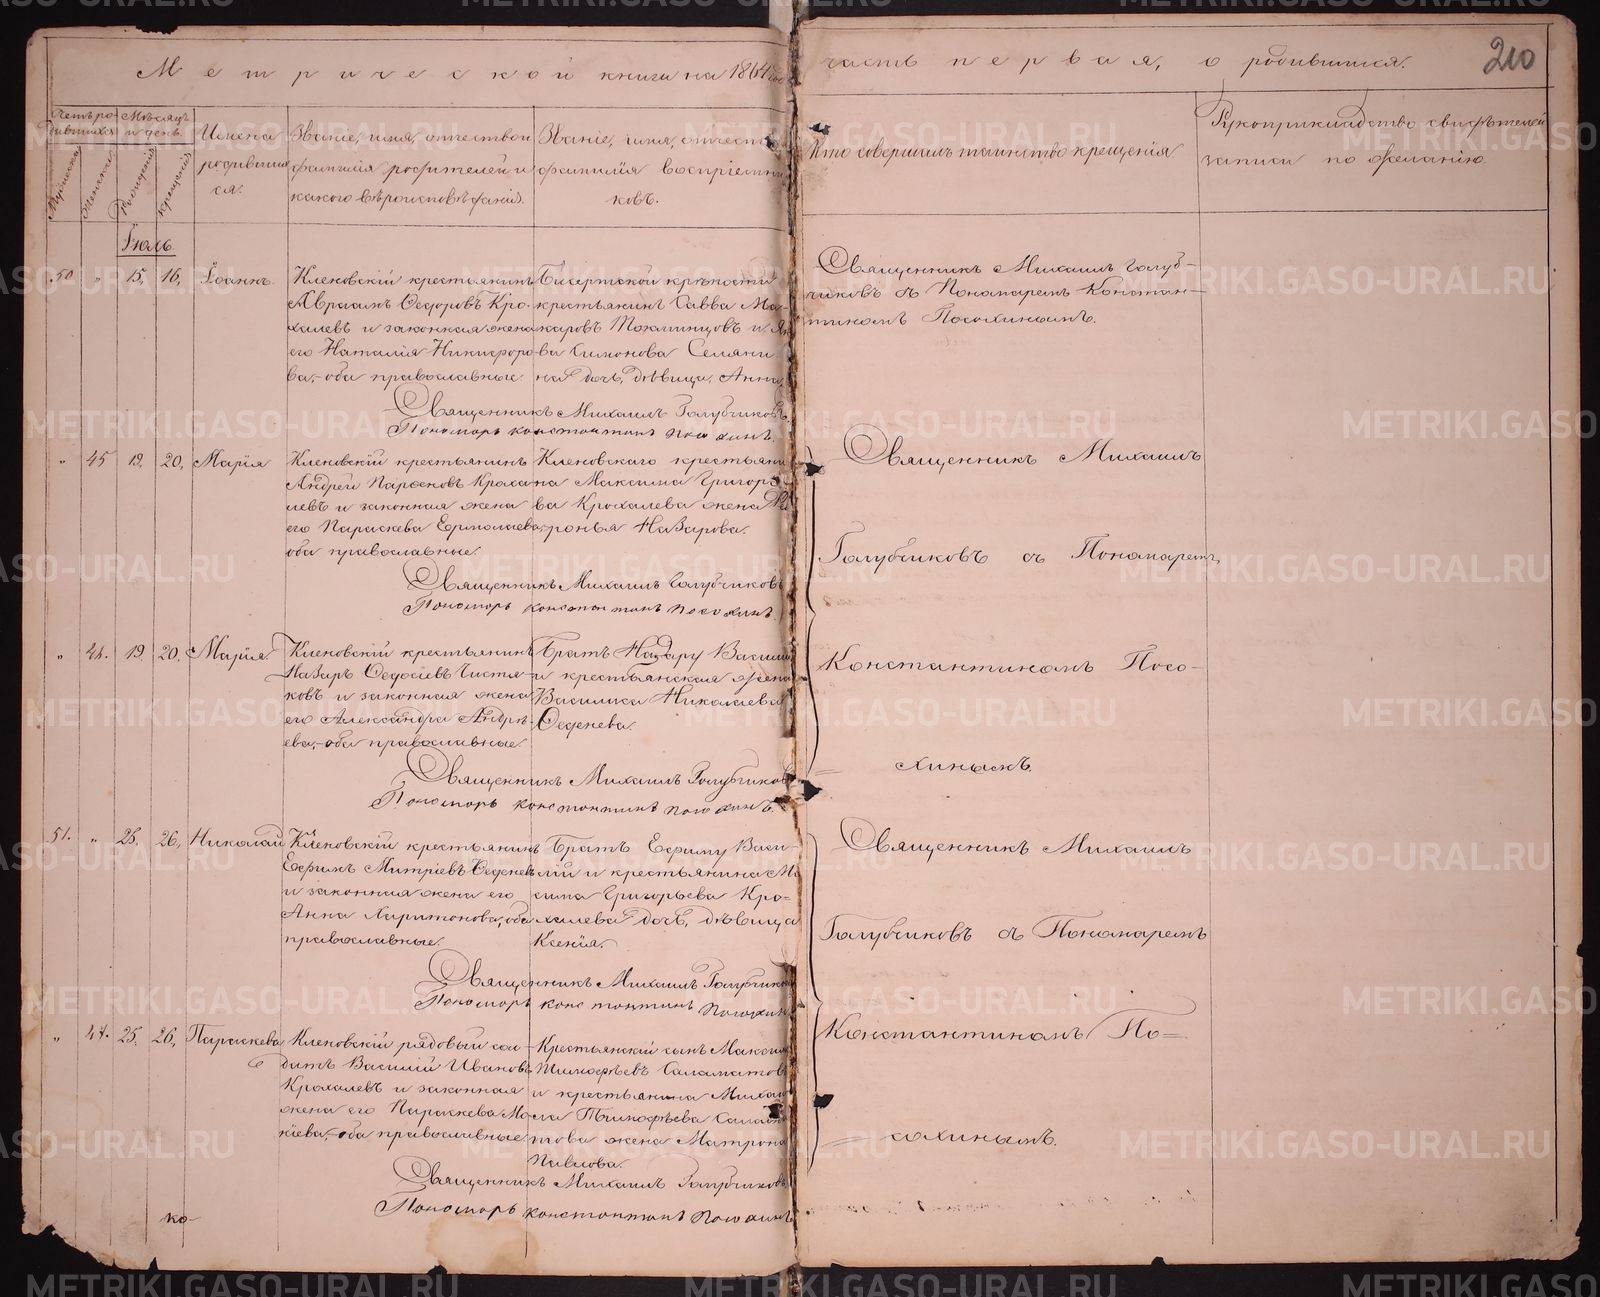 Метрической книги на 1864 годъ
часть первая, о родившихся.
210
Счетъ ро-
дившихся
Мѣсяцъ
и день.
Мужеска
Женска
Рожденія
Крещенія
Имена
родивших
ся.
Званіе, имя, отчество и
фамилія родителей и
какого вѣроисповѣданія.
Званіе, имя, отчество
фамилія воспріемни
ковъ.
Кто совершалъ таинство крещенія
Рукоприкладство свидѣтелей
записи по желанію.
Іюль
50 " 15, 16, Іоаннъ
Кленовскій крестьянинъ
Авраамъ Ѳедоровъ Кро-
халевъ и законная жена
его Наталія Никифоро-
ва, оба православные.
Бисертской крѣпости
крестьянинъ Савва Ма-
каровъ и
ва Симонова Селяни
на дочь, дѣвица, Анна,
Священникъ Михаилъ Голуб-
чиковъ съ Пономаремъ Констан-
тиномъ Посохинымъ.
Священникъ Михаилъ Голубчиковъ
Пономарь Константинъ Посохинъ.
" 45 19, 20, Марія
Кленовскій крестьянинъ
Андрей Парѳеновъ Кроха
левъ и законная жена
его Параскева Ермолаева,
оба православные.
Кленовскаго крестьяни
на Максима Григорь
ва Крохалева жена
ронья Назарова.
Священникъ Михаилъ
Голубчиковъ съ Пономаремъ
Константиномъ Посо-
хинымъ.
Священникъ Михаилъ Голубчиковъ
Пономарь Константинъ Посохинъ.
" 46. 19. 20. Марія.
Кленовскій крестьянинъ
Назаръ Ѳедосіевъ Чистя-
ковъ и законная жена
его Александра Андре-
ева, оба православные.
Братъ Назару Василій
и крестьянская жена
Василиса Николаева
Ѳеденева.
Священникъ Михаилъ Голубчиковъ
Пономарь Константинъ Посохинъ.
51. " 25, 26, Николай
Кленовскій крестьянинъ
Ефримъ Митріевъ Ѳеденевъ
и законная жена его
Анна Харитонова, оба
православные.
Братъ Ефриму Васи-
лій и крестьянина Ма
сима Григорьева Кро=
халева дочь, дѣвица
Ксенія.
Священникъ Михаилъ
Голубчиковъ съ Пономаремъ
Константиномъ По=
сохинымъ.
Священникъ Михаилъ Голубчиковъ
Пономарь Константинъ Посохинъ
" 47. 25. 26, Параскева
Кленовскій рядовый сол-
датъ Василій Ивановъ
Крохалевъ и законная
жена его Параскева Мо-
кіева, оба православные.
Крестьянскій сынъ Максимъ
Тимофѣевъ Саламатовъ
и крестьянина Михаи
ла Тимофѣева Салама
това жена Матрона
Павлова.
Священникъ Михаилъ Голубчиковъ
Пономарь Константинъ Посохинъ
ко-
METRIKI.GASO-URAL.RU